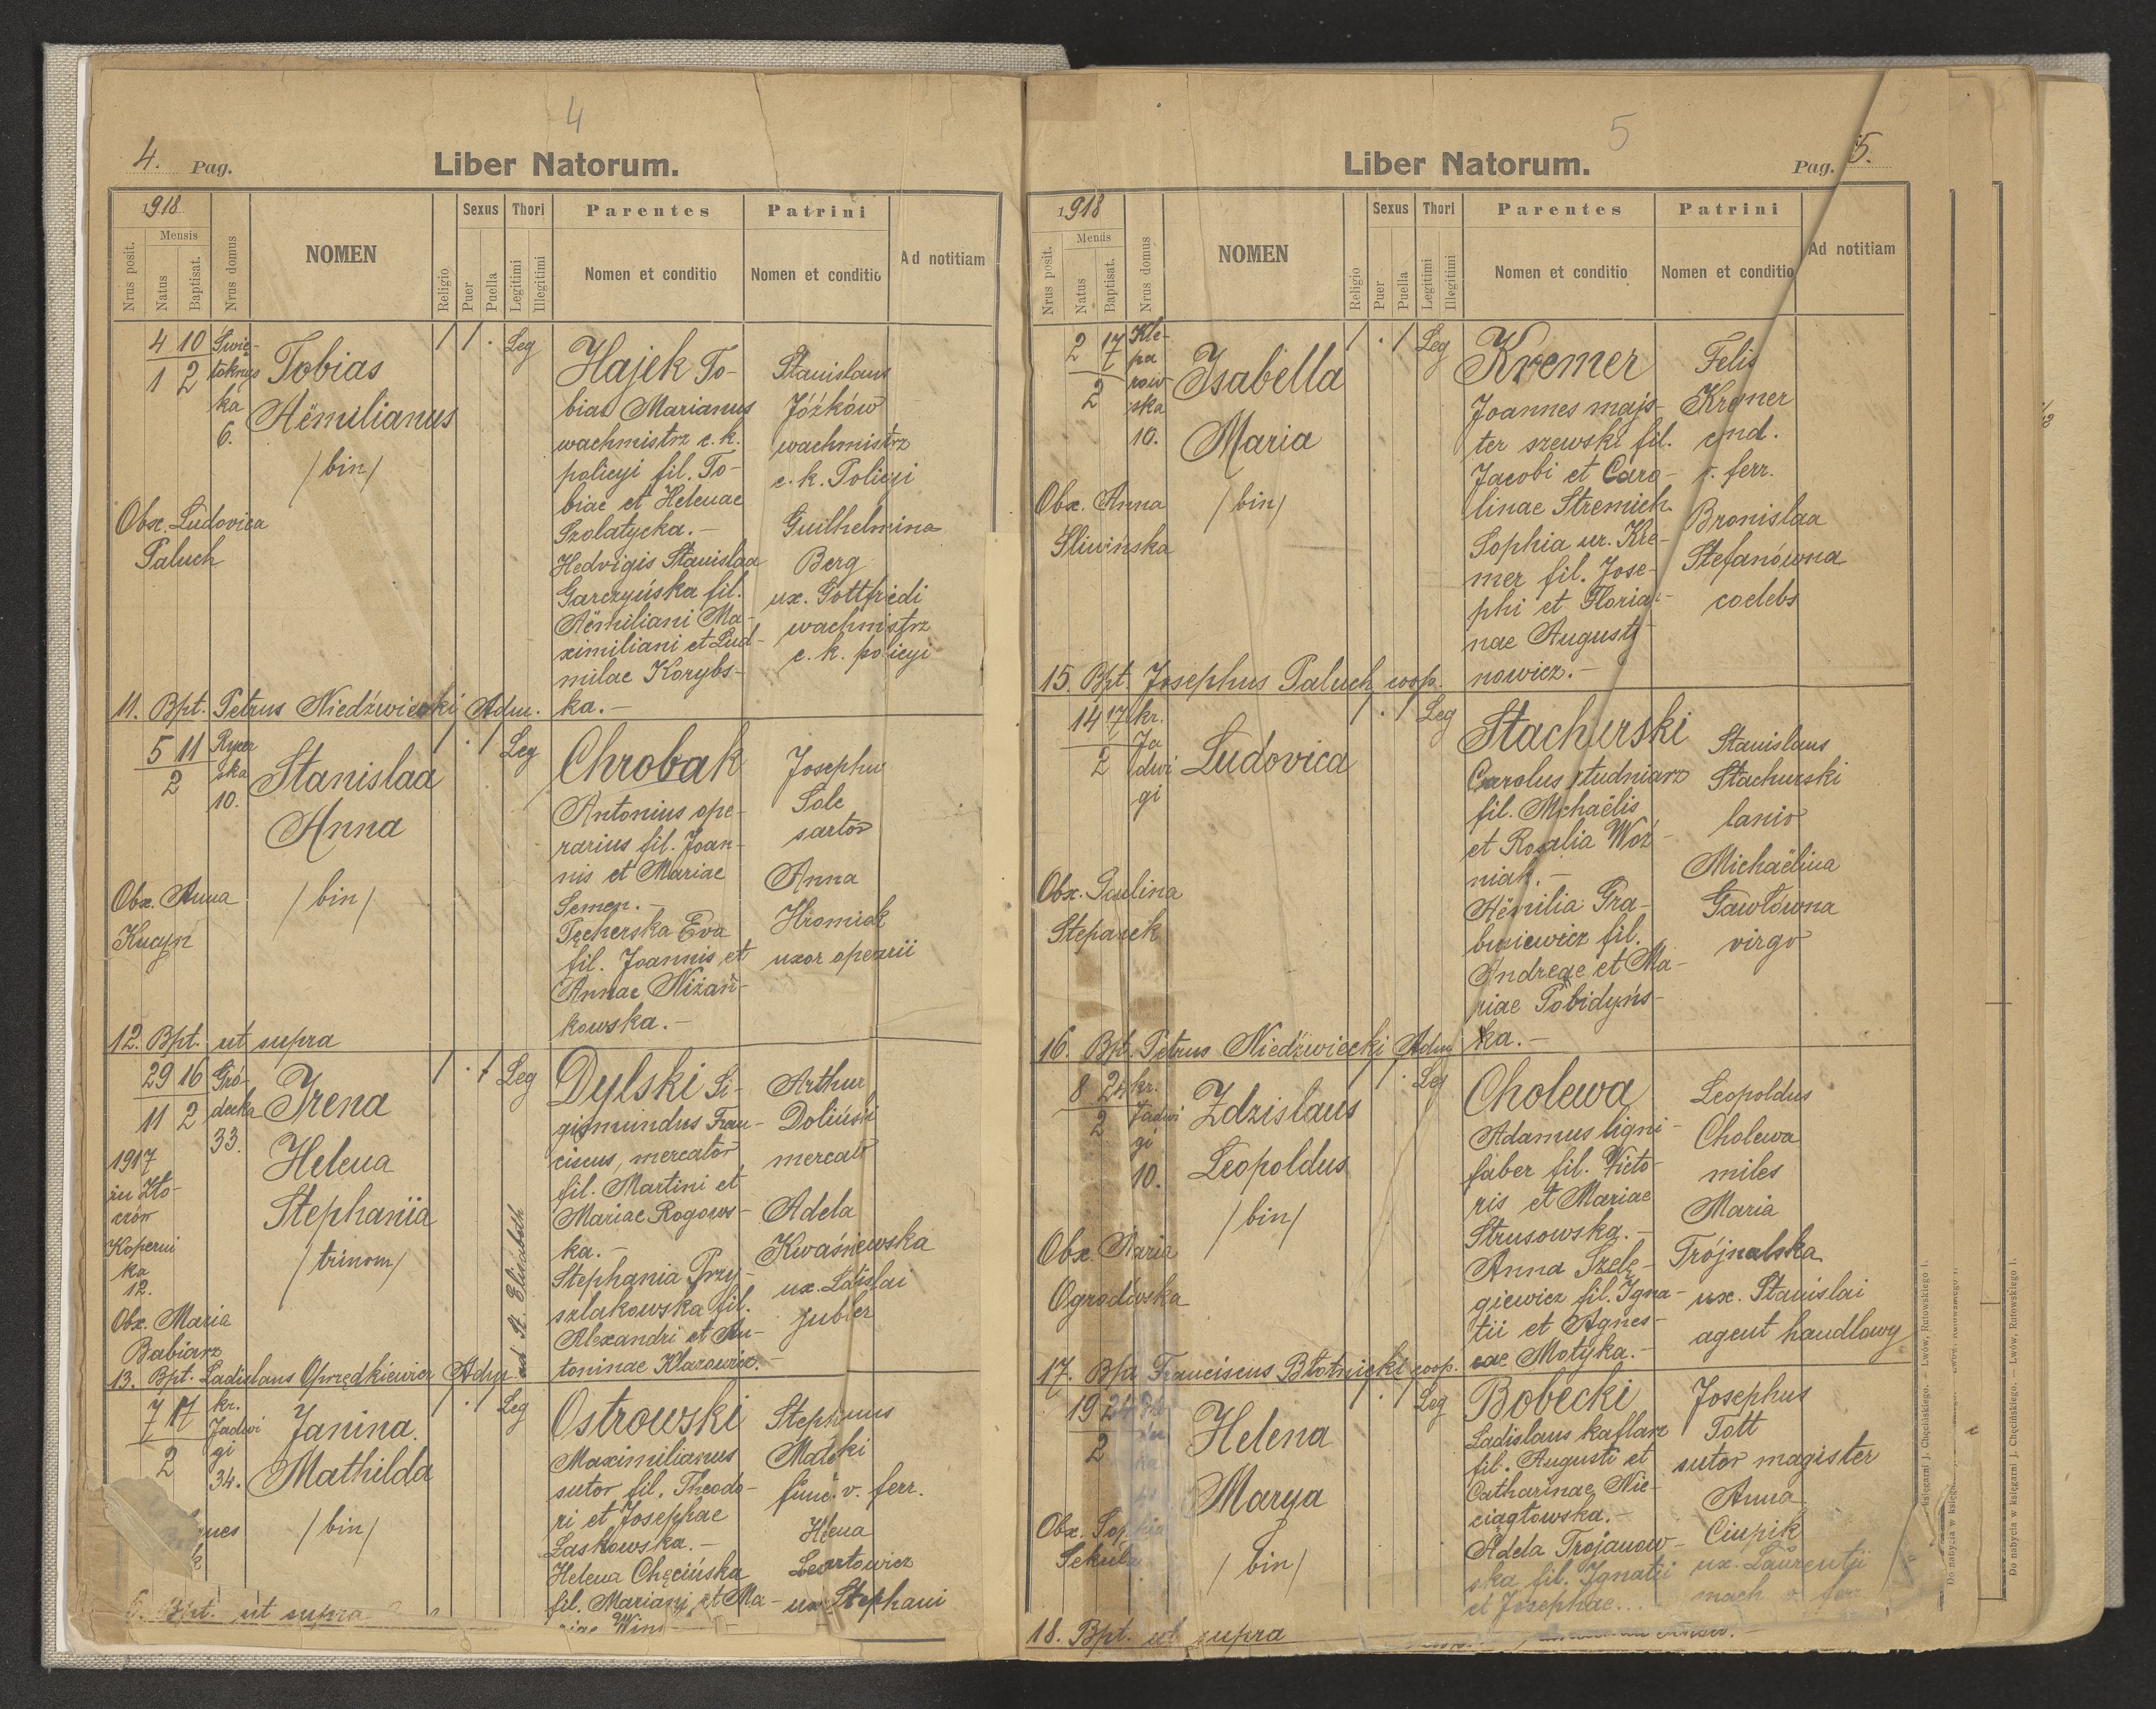 4
4. Pag.
Liber Natorum.
1918
Mensis
Nrus posit.
Natus
Baptisat.
Nrus domus
NOMEN
Religio
Sexus
Puer
Puella
Thori
Legitimi
Illegitimi
Parentes
Nomen et conditio
Patrini
Nomen et conditio
Ad notitiam
4 10
1 2
Świę-
tokrzys
ka
6.
Tobias
Aëmilianus
/bin/
Obx. Ludovica
Paluch
1 1 . Leg
Hajek To-
bias Marianus
wachmistrz c. k.
policyi fil. To-
biae et Helenae
Szolatycka.-
Hedvigis Stanislaa
Garczyńska fil.
Aëmiliani Ma-
ximiliani et Lud-
milae Korybs-
ka.-
Stanislaus
Jóźków
wachmistrz
c. k. Policyi
Guilhelmina
Berg
ux. Gottfriedi
wachmistrz
c. k. policyi
11. Bpt. Petrus Niedźwiecki Adm.
5 11
2
Rycer
ska
10.
Stanislaa
Anna
/bin/
Obx. Anna
1 . 1 Leg
Chrobak
Antonius ope-
rarius fil. Joan-
nis et Mariae
Semen.-
Pęcherska Eva
fil. Joannis et
Annae Niżań-
kowska.-
Josephus
Sole
sartor
Anna
Hromiak
uxor operarii
12. Bpt. ut supra
29 16
11 2
1917
Gró-
decka
33.
Irena
Helena
Stephania
/trinom/
Koperni
ka
12.
Obx. Maria
Babiarz
1 . 1 Leg
ad St. Elisabeth
Dylski Si-
gismundus Fran-
ciscus, mercator
fil. Martini et
Mariae Rogows-
ka.-
Stephania Przy-
szlakowska fil.
Alexandri et An-
toninae Klarowicz.-
Arthur
Doliński
mercator
Adela
Kwaśniewska
ux. Ladislai
jubler
13. Bpt. Ladislaus Oprzędkiewicz Adm.
7 17
2
kr.
Jadwi
gi
34.
Janina
Mathilda
/bin/
1 . 1 Leg
Ostrowski
Maximilianus
sutor fil. Theodo-
ri et Josephae
Laskowska.-
Helena Chęcińska
fil. Mariani et Ma-
Stephanus
func. v. ferr.
Leartowicz
ux. Stephani
Bpt. ut supra
5
Liber Natorum.
Pag. 5.
1918
Mensis
Nrus posit.
Natus
Baptisat.
Nrus domus
NOMEN
Religio
Sexus
Puer
Puella
Thori
Legitimi
Illegitimi
Parentes
Nomen et conditio
Patrini
Nomen et conditio
Ad notitiam
2 17
2
Kle-
pa
row
ska
10.
Isabella
Maria
/bin/
Obx. Anna
Śliwińska
1 . 1 Leg
Kremer
Joannes majs-
ter szewski fil.
Jacobi et Caro-
linae Stremich.
Sophia ur. Kre-
mer fil. Jose-
phi et Floria-
nae Augusty
nowicz.-
Felix
Kremer
cond.
v. ferr.
Bronislaa
Stefanówna
coelebs
15. Bpt. Josephus Paluch coop.
14 17
2
kr.
Ja
dwi
gi
Ludovica
Obx. Paulina
Stepanek
1 . 1 Leg
Stachurski
Carolus studniarz
fil. Mchaëlis
et Rosalia Woź-
niak.-
Aëmilia Gra-
busiewicz fil.
Andreae et Ma-
riae Pobidyńs-
ka.-
Stanislaus
Stachurski
lanio
Michaëlina
Gawłówna
virgo
16. Bpt. Petrus Niedźwiecki Adm
8 24
2
kr.
Jadwi
gi
10.
Zdzislaus
Leopoldus
/bin/
Obx. Maria
Ogrodowska
1 1 . Leg
Cholewa
Adamus ligni-
faber fil. Victo-
ris et Mariae
Strusowska.-
Anna Szelę-
giewicz fil. Igna-
tii et Agnes-
eae Motyka.-
Leopoldus
Cholewa
miles
Maria
Trójnalska
ux. Stanislai
agent handlowy
17. Bpt. Franciscus Błotnicki coop.
19 24
2
Helena
Marya
/bin/
Obx. Sophia
1 . 1 Leg
Bobecki
Ladislaus kaflarz
fil. Augusti et
Catharinae Nie-
ciągłowska.-
Adela Trojanow-
ska fil. Ignatii
et Josephae...
Josephus
Tott
sutor magister
Anna
Ciupik
ux. Laurentii
mach v ferr
18. Bpt. ut supra
Do nabycia w księgarni J. Chęcińskiego. — Lwów, Rutowskiego 1.